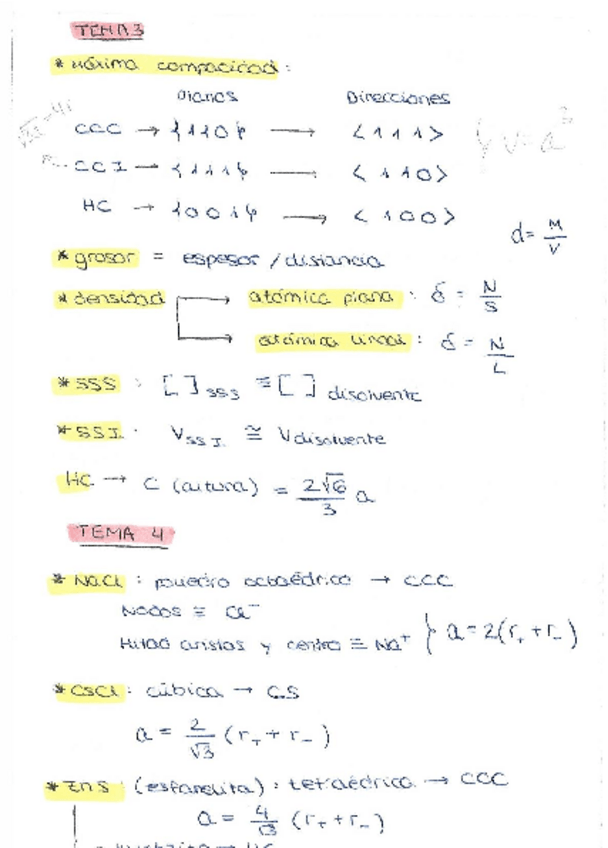 TEMA 3
* Máxima compacidad:
Planos Direcciones
CCC → {110} → <111>
CCI → {111} → <110>
HC → {001} → <100>
y v=a³
d = M/V
* grosor = espesor / distancia
* densidad → atómica plana : δ = N/S
→ atómica lineal : δ = N/L
* SSS : [ ]SSS ≡ [ ] disolvente
* SSI : V SSI ≅ V disolvente
HC → C (altura) = 2√6/3 a
TEMA 4
* NaCl : poliedro octaédrico → CCC
Nodos ≡ Cl⁻
Mitad aristas y centro ≡ Na⁺ } a = 2(r₊ + r₋)
* CsCl : cúbica → CS
a = 2/√3 (r₊ + r₋)
* ZnS : (esfarelita) : tetraédrica → CCC
a = 4/√3 (r₊ + r₋)